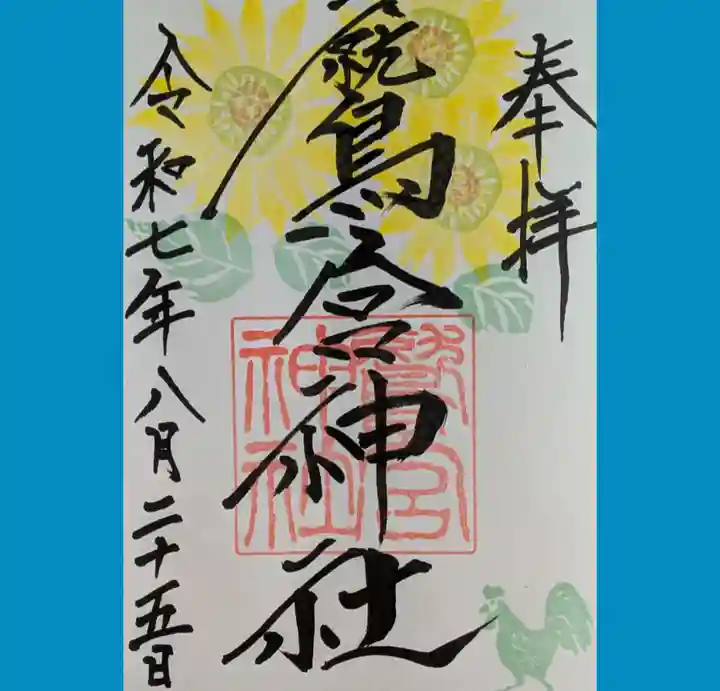 奉拝
鷲宮神社
鷲宮神社
令和七年八月二十五日